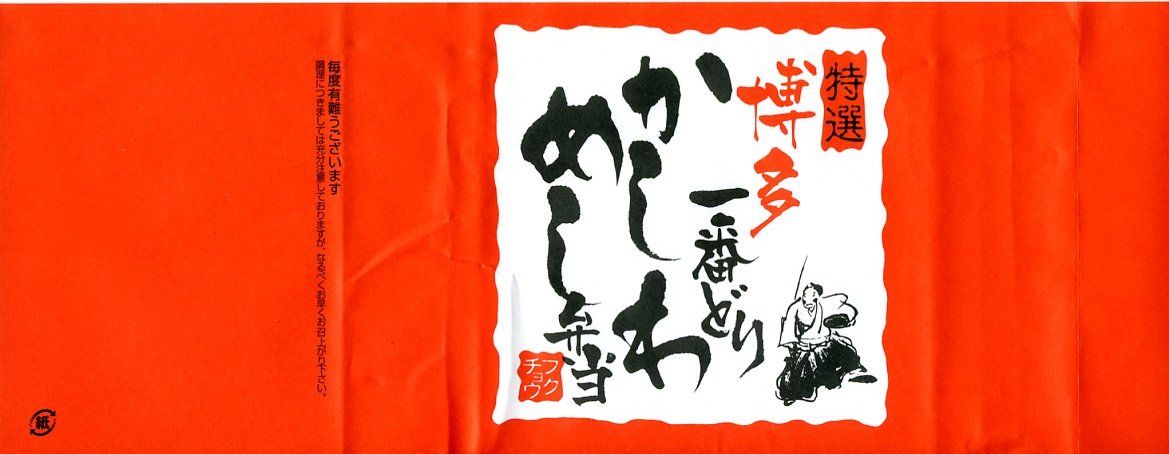 特選
博多
一番どり
かしわ
めし弁当
フク
チョウ
毎度有難うございます
調理につきましては充分注意しておりますが、なるべくお早くお召上がり下さい。
紙